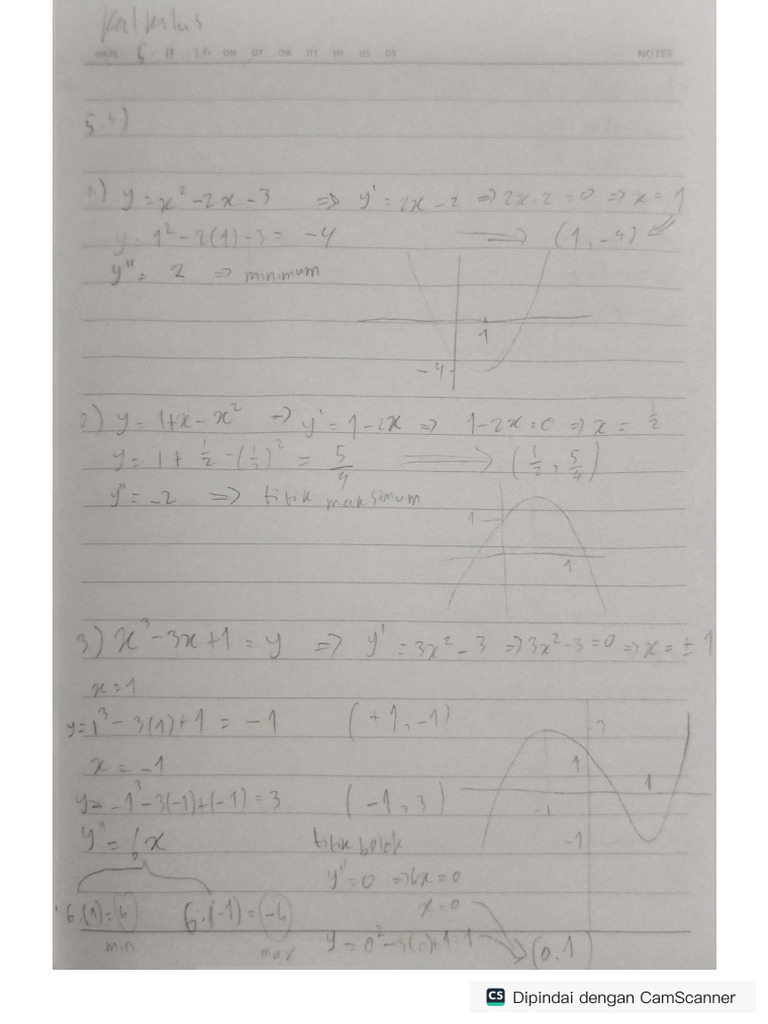 Kalkulus
DATE 5 11 24 OM OT OW OT OF OS OS NOTES
5.4)
1.) y = x² - 2x - 3 ⇒ y' = 2x - 2 ⇒ 2x - 2 = 0 ⇒ x = 1
y = 1² - 2(1) - 3 = -4 ⇒ (1, -4)
y'' = 2 ⇒ minimum
1
-4
2) y = 1+x - x² ⇒ y' = 1 - 2x ⇒ 1 - 2x = 0 ⇒ x = 1/2
y = 1 + 1/2 - (1/2)² = 5/4 ⇒ (1/2, 5/4)
y'' = -2 ⇒ titik maksimum
1
1
3) x³ - 3x + 1 = y ⇒ y' = 3x² - 3 ⇒ 3x² - 3 = 0 ⇒ x = ± 1
x = 1
y = 1³ - 3(1) + 1 = -1 (+1, -1)
3
x = -1
1 1
y = -1³ - 3(-1) + (-1) = 3 (-1, 3)
-1
y'' = 6x titik belok
-1
y'' = 0 ⇒ 6x = 0
6.(1) = 6 6.(-1) = -6 x = 0
min max y = 0² - 3(0) + 1 = 1 (0.1)
CS Dipindai dengan CamScanner